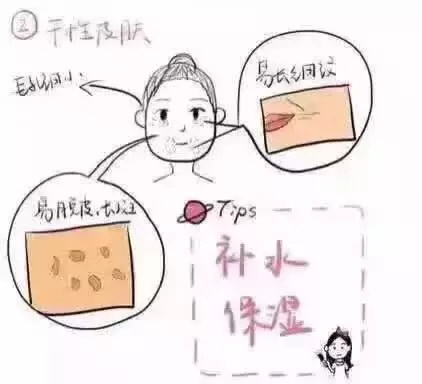 ② 干性皮肤
毛孔细小
易长细纹
易脱皮、长斑
Tips
补水
保湿